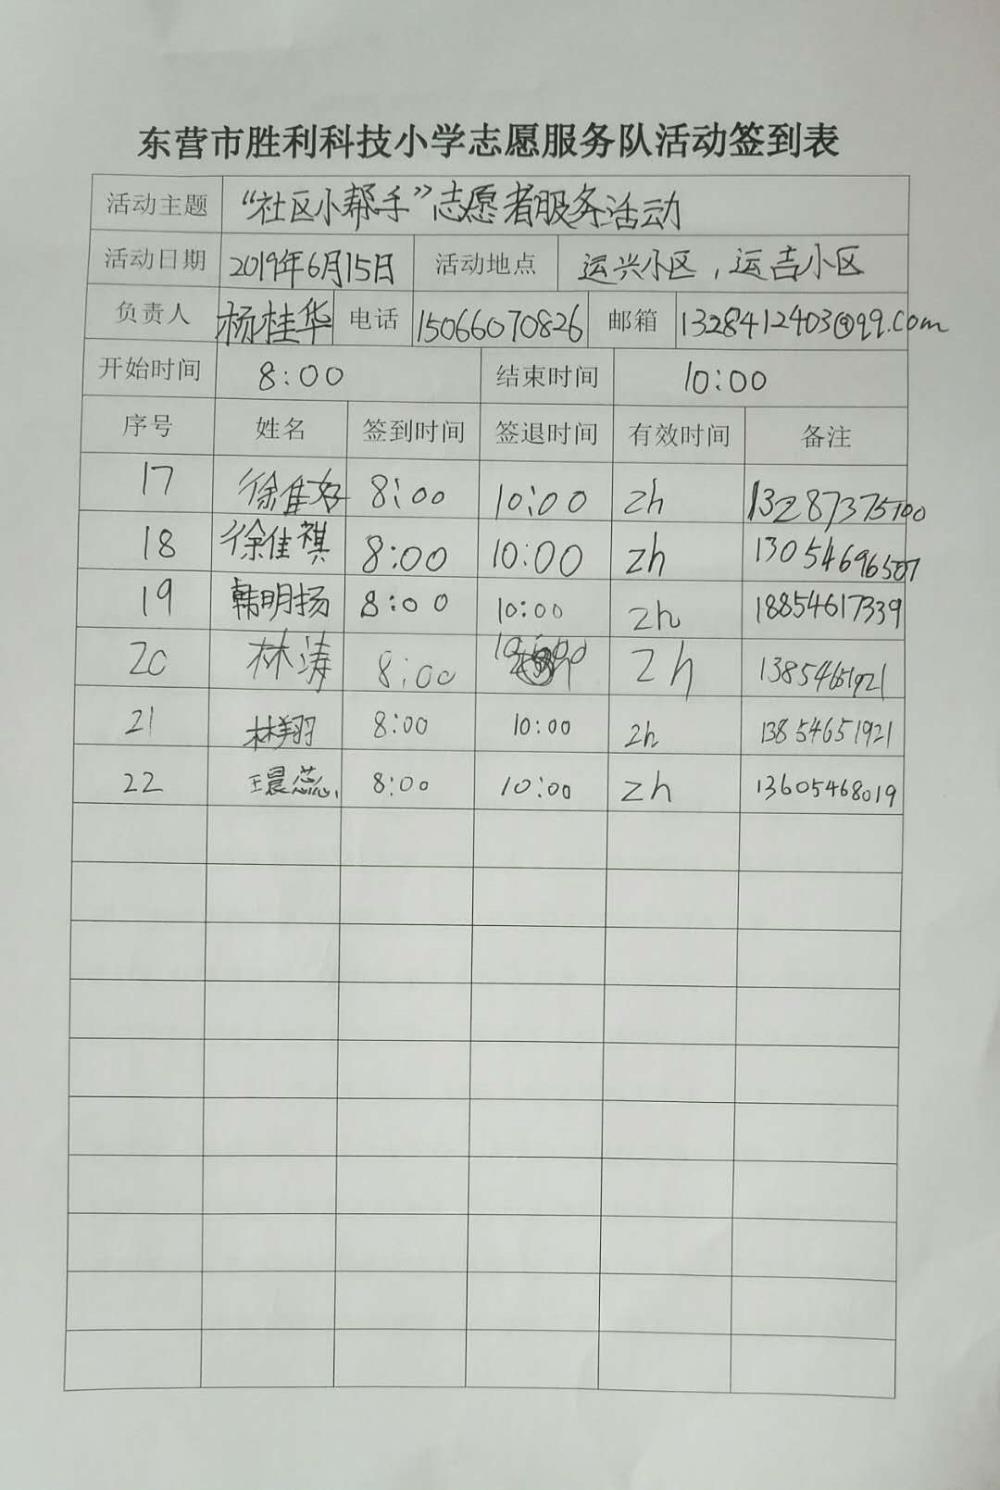 东营市胜利科技小学志愿服务队活动签到表
活动主题 “社区小帮手”志愿者服务活动
活动日期 2019年6月15日 活动地点 运兴小区，运吉小区
负责人 杨桂华 电话 15066070826 邮箱 1328412403@qq.com
开始时间 8:00 结束时间 10:00
序号 姓名 签到时间 签退时间 有效时间 备注
17 徐佳好 8:00 10:00 2h 13287375100
18 徐佳祺 8:00 10:00 2h 13054696507
19 韩明扬 8:00 10:00 2h 18854617339
20 林涛 8:00 10:00 2h 13854651921
21 林翔 8:00 10:00 2h 13854651921
22 王晨蕊 8:00 10:00 2h 13605468019